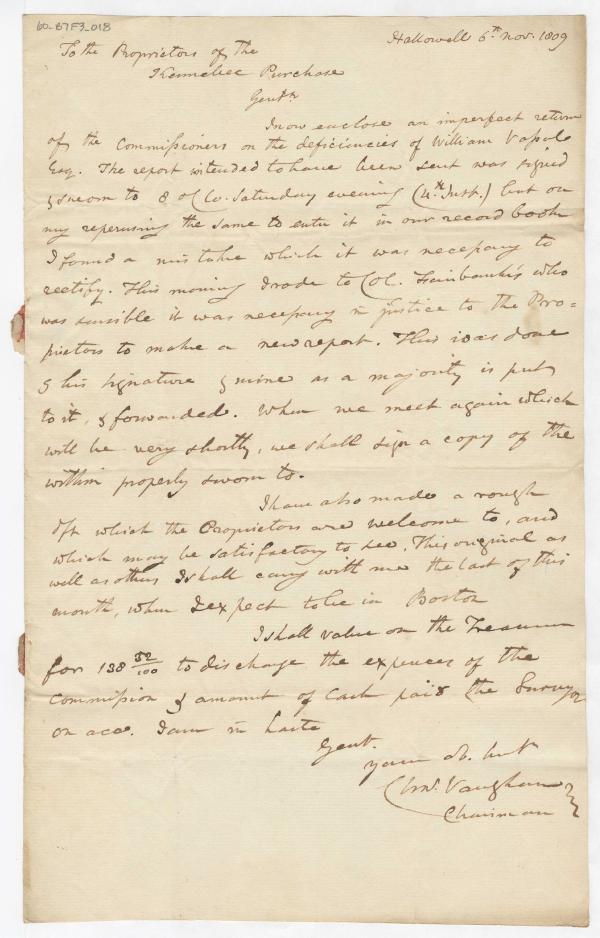 60-87F3_018
Hallowell 6th Nov. 1809
To the Proprietors of the
Kennebec Purchase
Gentn
I now enclose an imperfect return
of the Commissioners on the deficiencies of William Vassall
Esq. The report intended to have been sent was signed
& sworn to 8 oClo. Saturday evening (4th Inst.) but on
my reperusing the same to enter it in our record book
I found a mistake which it was necessary to
rectify. This morning I rode to Col. Fairbanks's who
was sensible it was necessary in justice to the Pro=
prietors to make a new report. This was done
& his signature & mine as a majority is put
to it, & forwarded. When we meet again which
will be very shortly, we shall sign a copy of the
within properly sworn to.
I have also made a rough
dft which the Proprietors are welcome to, and
which may be satisfactory to see. This original as
well as others I shall carry with me the last of this
month, when I expect to be in Boston
I shall value on the Treasurer
for 138 52/100 to discharge the expences of the
Commission & amount of Cash paid the Surveyor
on acco. I am in haste
Gent.
your ob. Sert
Chas. Vaughan
Chairman